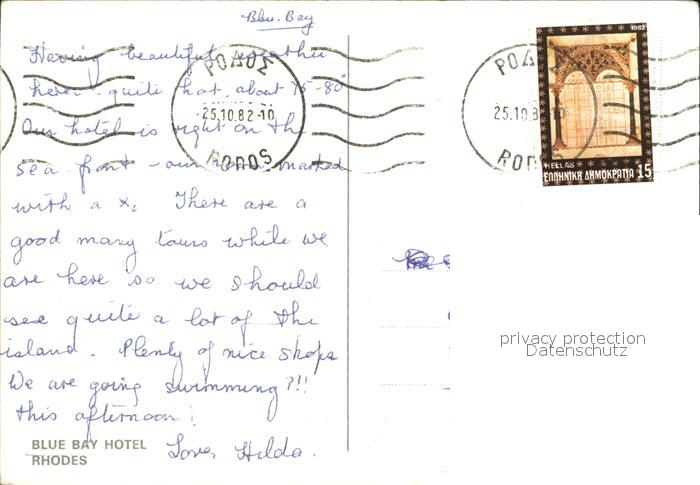 Blue Bay
Having beautiful weather
here - quite hot, about 75-80°
Our hotel is right on the
sea front - our room marked
with a x. There are a
good many tours while we
are here so we should
see quite a lot of the
island. Plenty of nice shops
We are going swimming?!!
this afternoon!
Love, Hilda.
BLUE BAY HOTEL
RHODES
ΡΟΔΟΣ
25.10.82-10
RODOS
ΡΟΔ
25.10.8 10
ROD
1982
HELLAS
ΕΛΛΗΝΙΚΗ ΔΗΜΟΚΡΑΤΙΑ 15
privacy protection
Datenschutz